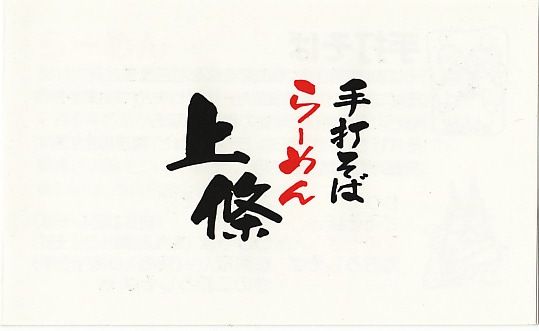 手打そば
らーめん
上條